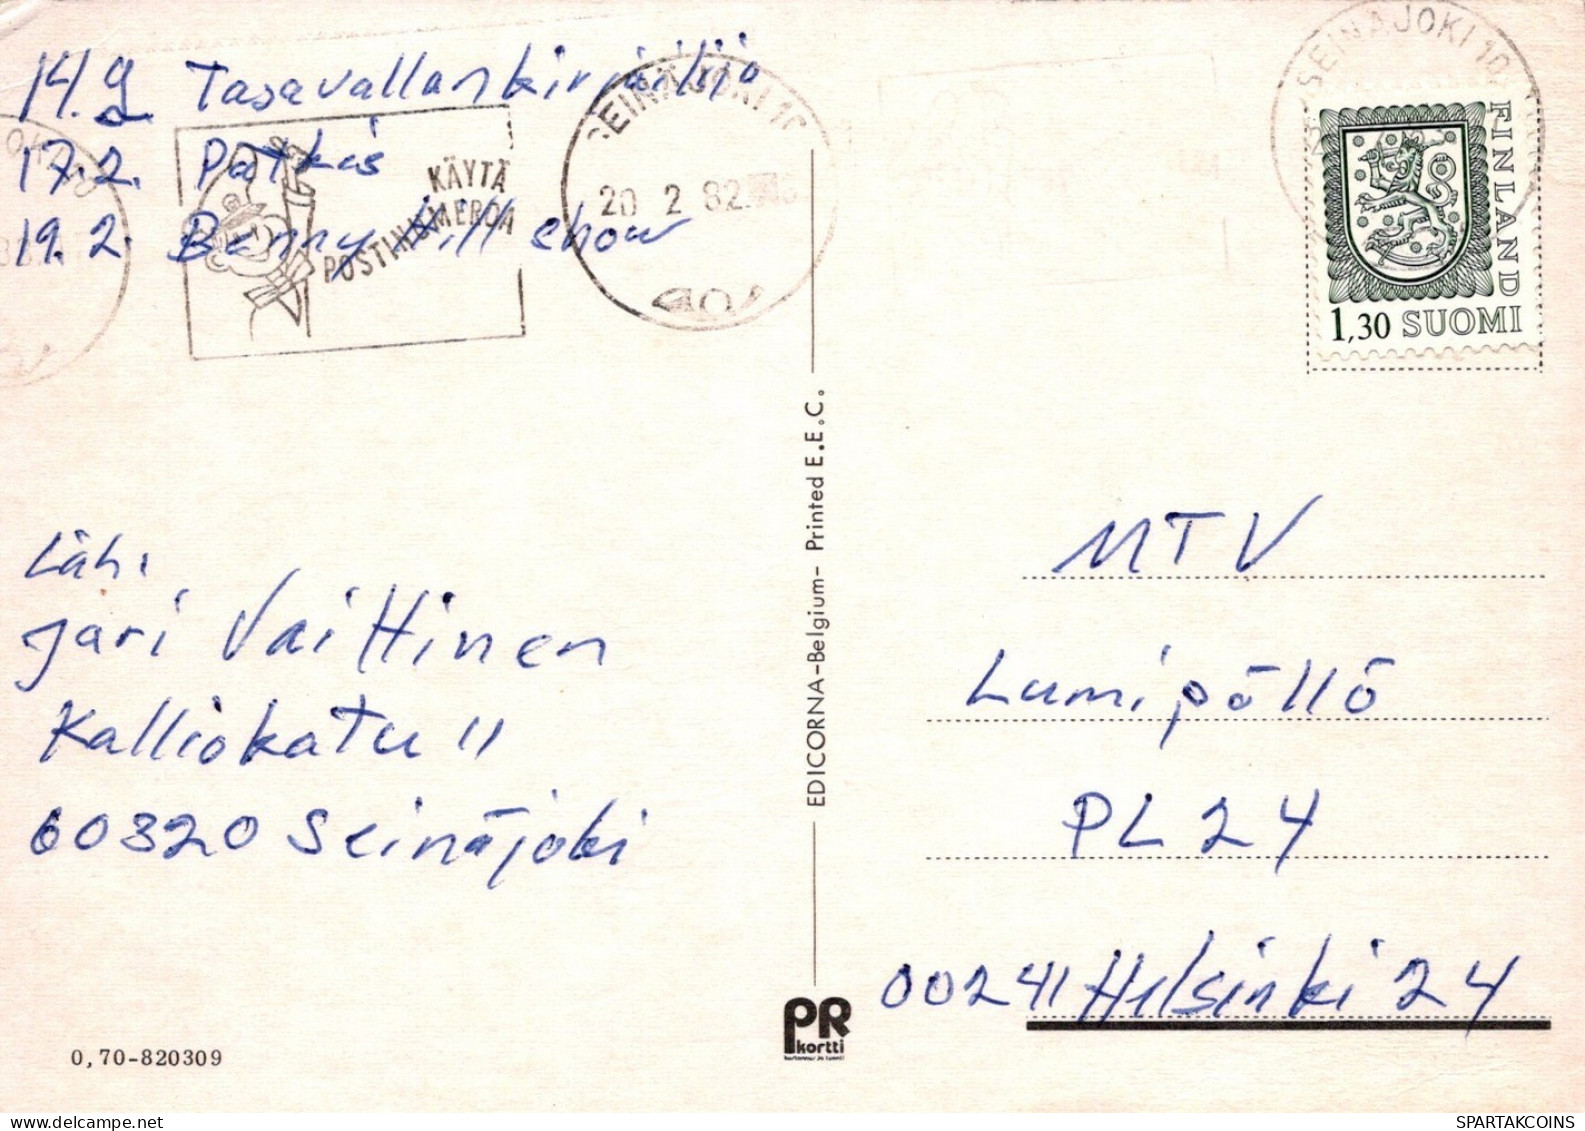 14.2 Tasavallankirjäilijä
17.2. Patkas
19.2. Benny Hill show
KÄYTÄ
POSTINUMEROA
SEINÄJOKI 10
20 2 82
SEINÄJOKI 10
FINLAND
1,30 SUOMI
Läh.
Jari Vaittinen
Kalliokatu 11
60320 Seinäjoki
0,70-820309
EDICORNA-Belgium- Printed E.E.C.
PR
kortti
MTV
Lumipöllö
PL 24
00241 Helsinki 24
SPARTAKCOINS